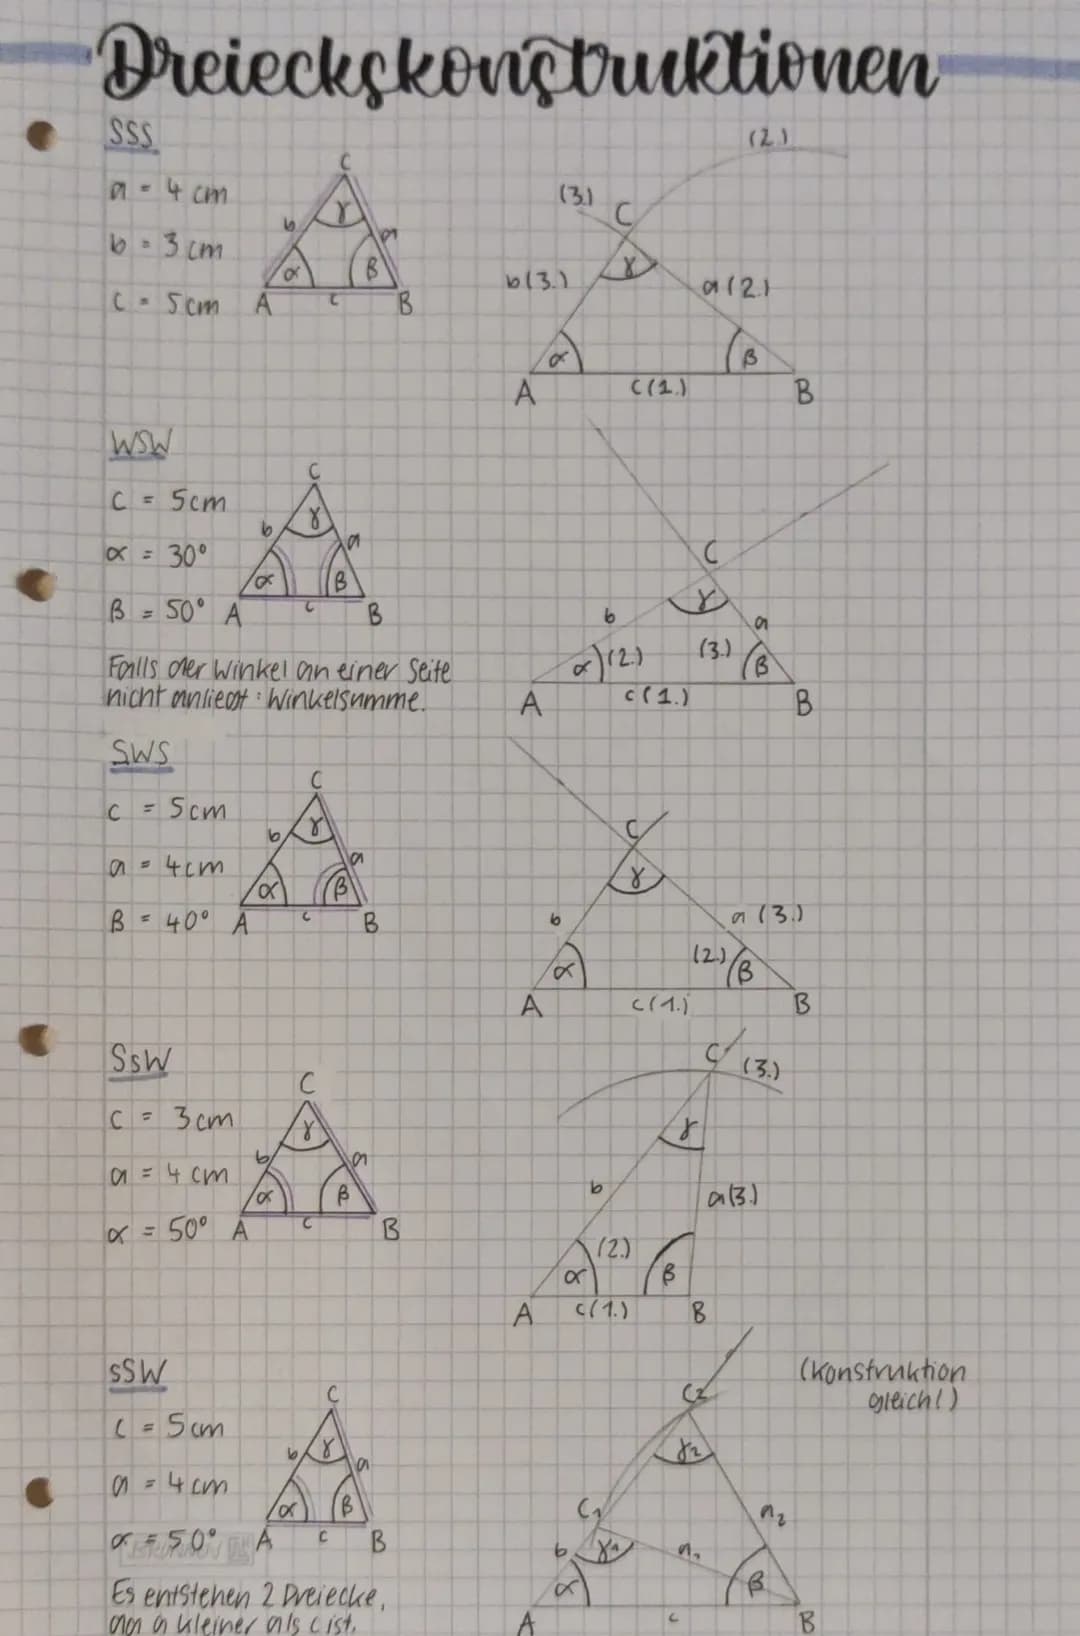 Dreieckskonstruktionen
SSS
a = 4 cm
b = 3 cm
c = 5 cm
C
b
γ
a
α
β
A
c
B
(2.)
(3.)
C
b (3.)
γ
a (2.)
α
β
A
c (1.)
B
WSW
c = 5 cm
α = 30°
β = 50°
C
b
γ
a
α
β
A
c
B
Falls der Winkel an einer Seite
nicht anliegt: Winkelsumme.
C
b
γ
a
α
(2.)
(3.)
β
A
c (1.)
B
SWS
c = 5 cm
a = 4 cm
β = 40°
C
b
γ
a
α
β
A
c
B
C
γ
b
a (3.)
α
(2.)
β
A
c (1.)
B
SsW
c = 3 cm
a = 4 cm
α = 50°
C
b
γ
a
α
β
A
c
B
C
(3.)
γ
b
a (3.)
α
(2.)
β
A
c (1.)
B
sSW
c = 5 cm
a = 4 cm
α = 50°
C
b
γ
a
α
β
A
c
B
Es entstehen 2 Dreiecke,
da a kleiner als c ist.
(Konstruktion
gleich!)
C2
γ2
C1
a2
b
γ1
a1
α
β
A
c
B